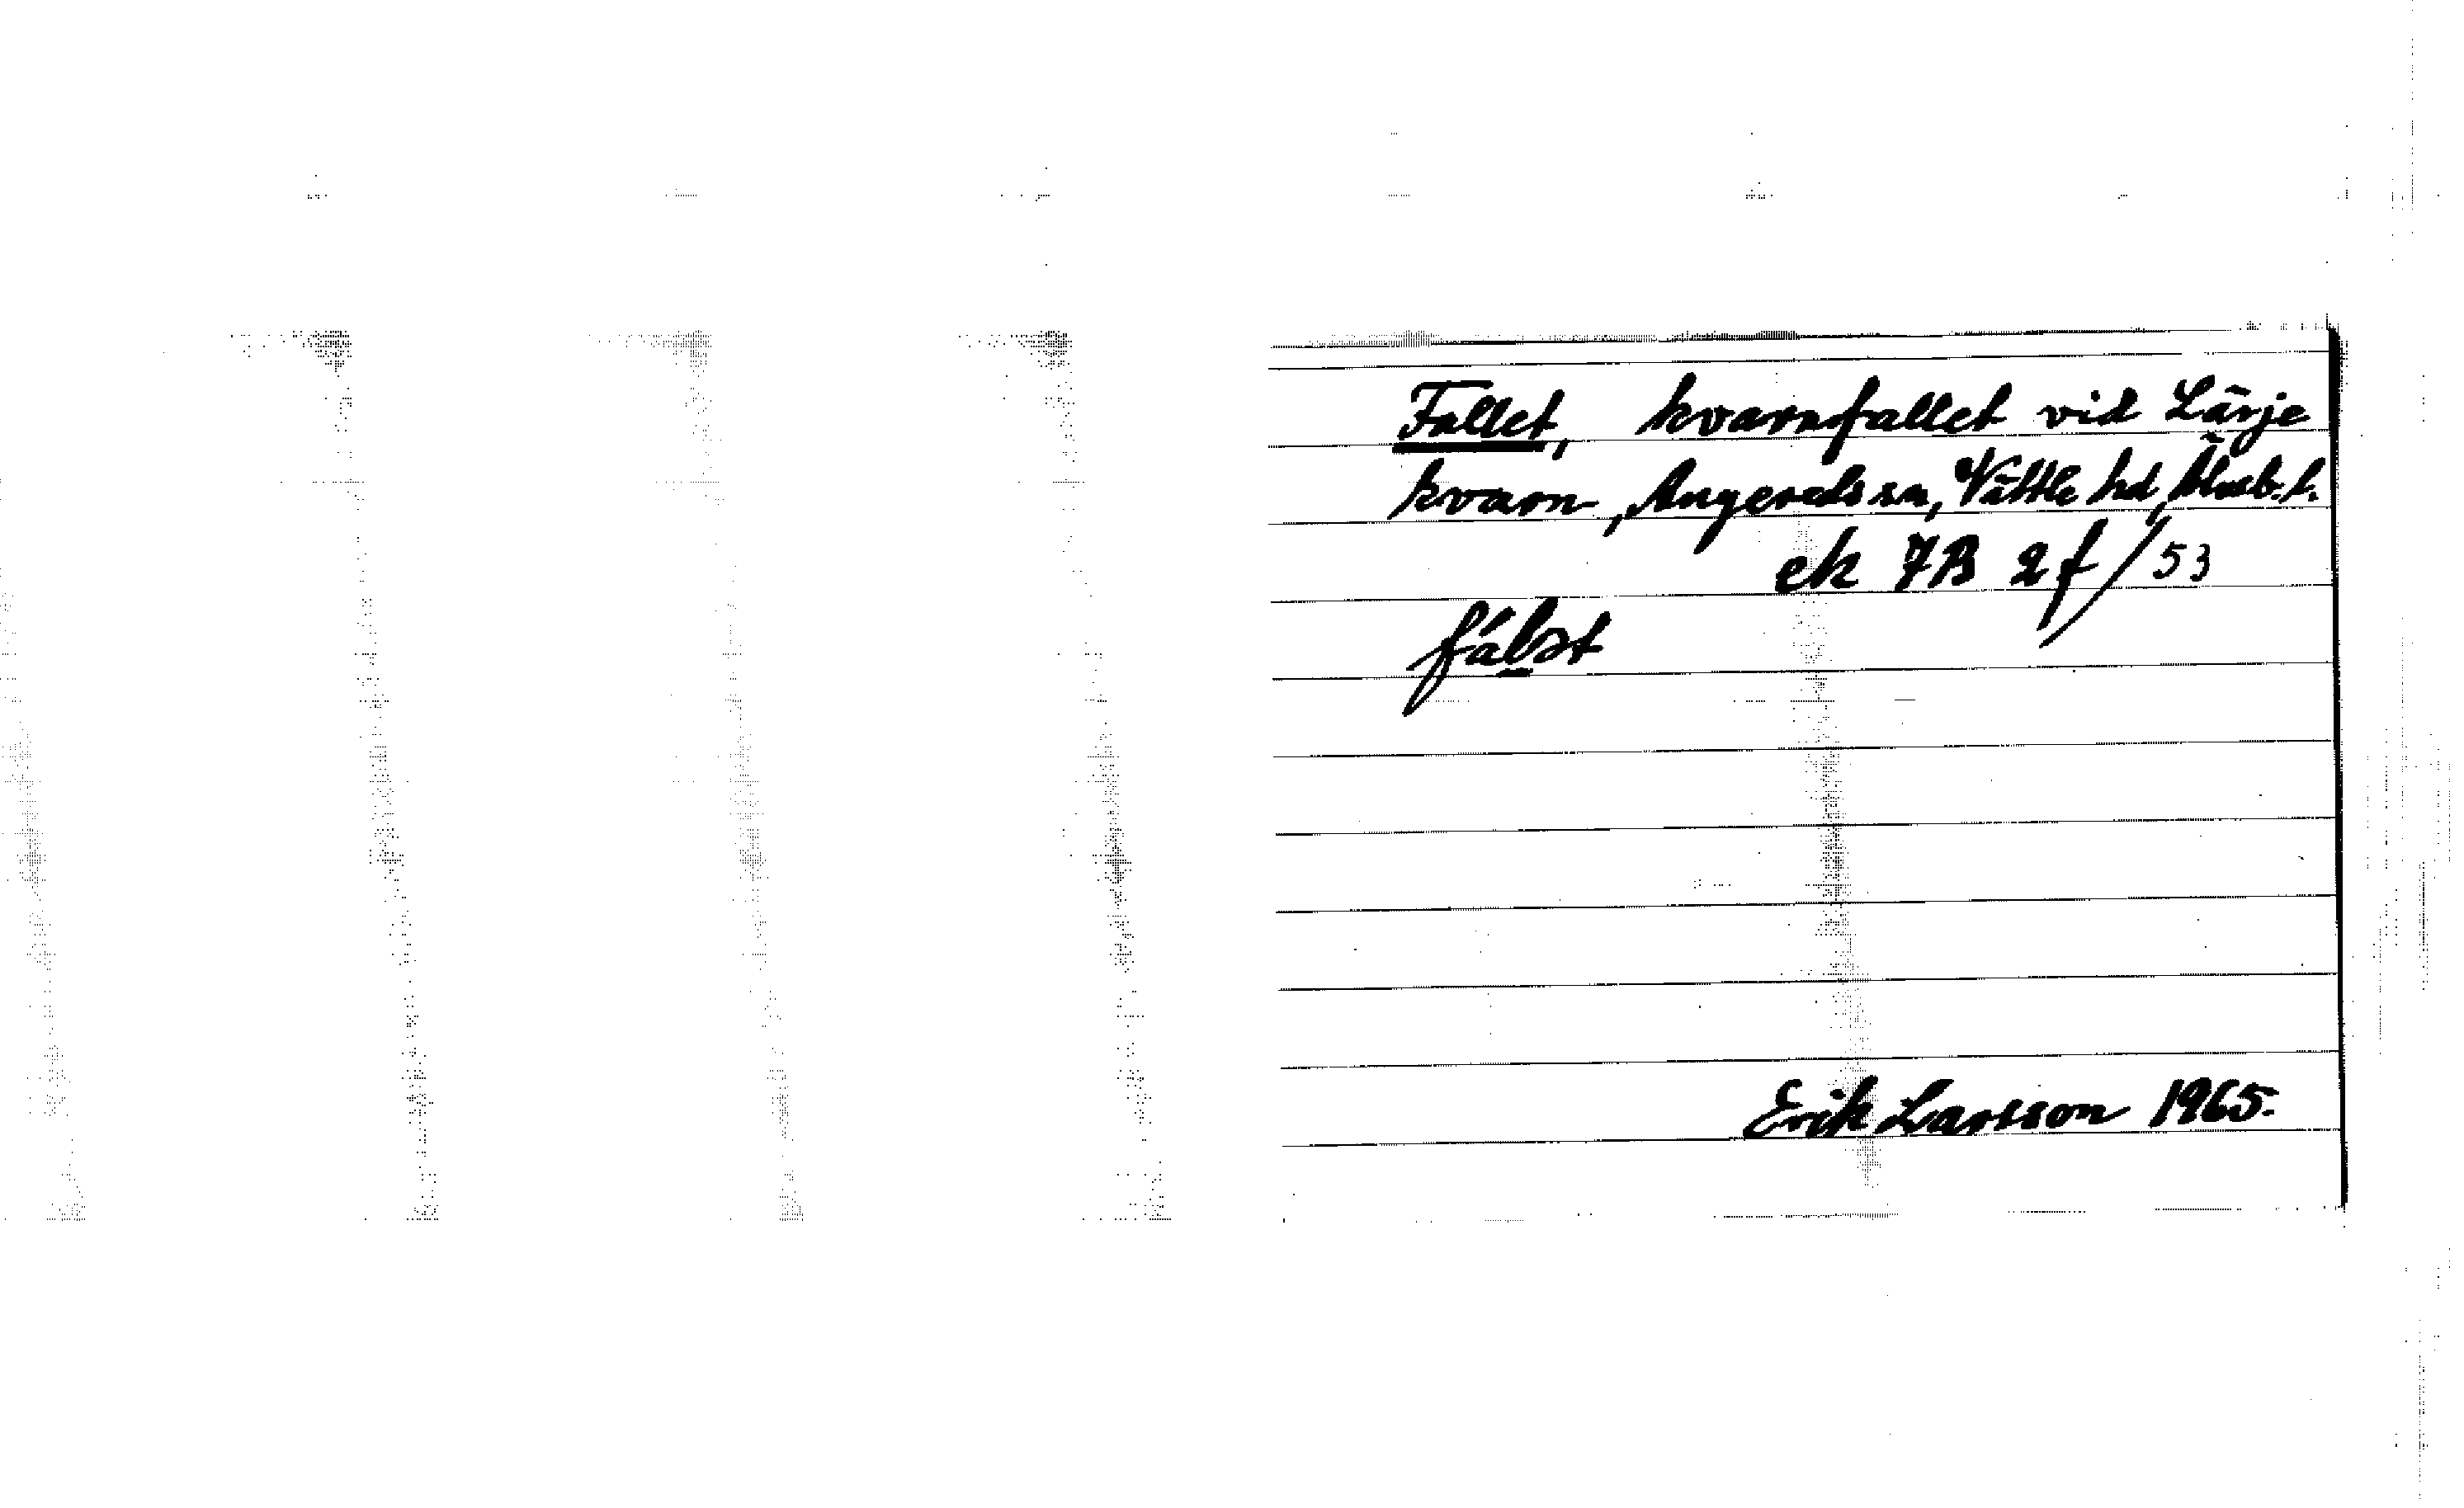 Fallet, kvarnfallet vid Lärje
kvarn, Angereds sn, Vättle hd, Älvsb. l.
ek 7B 2f/53
fálət
Erik Larsson 1965.